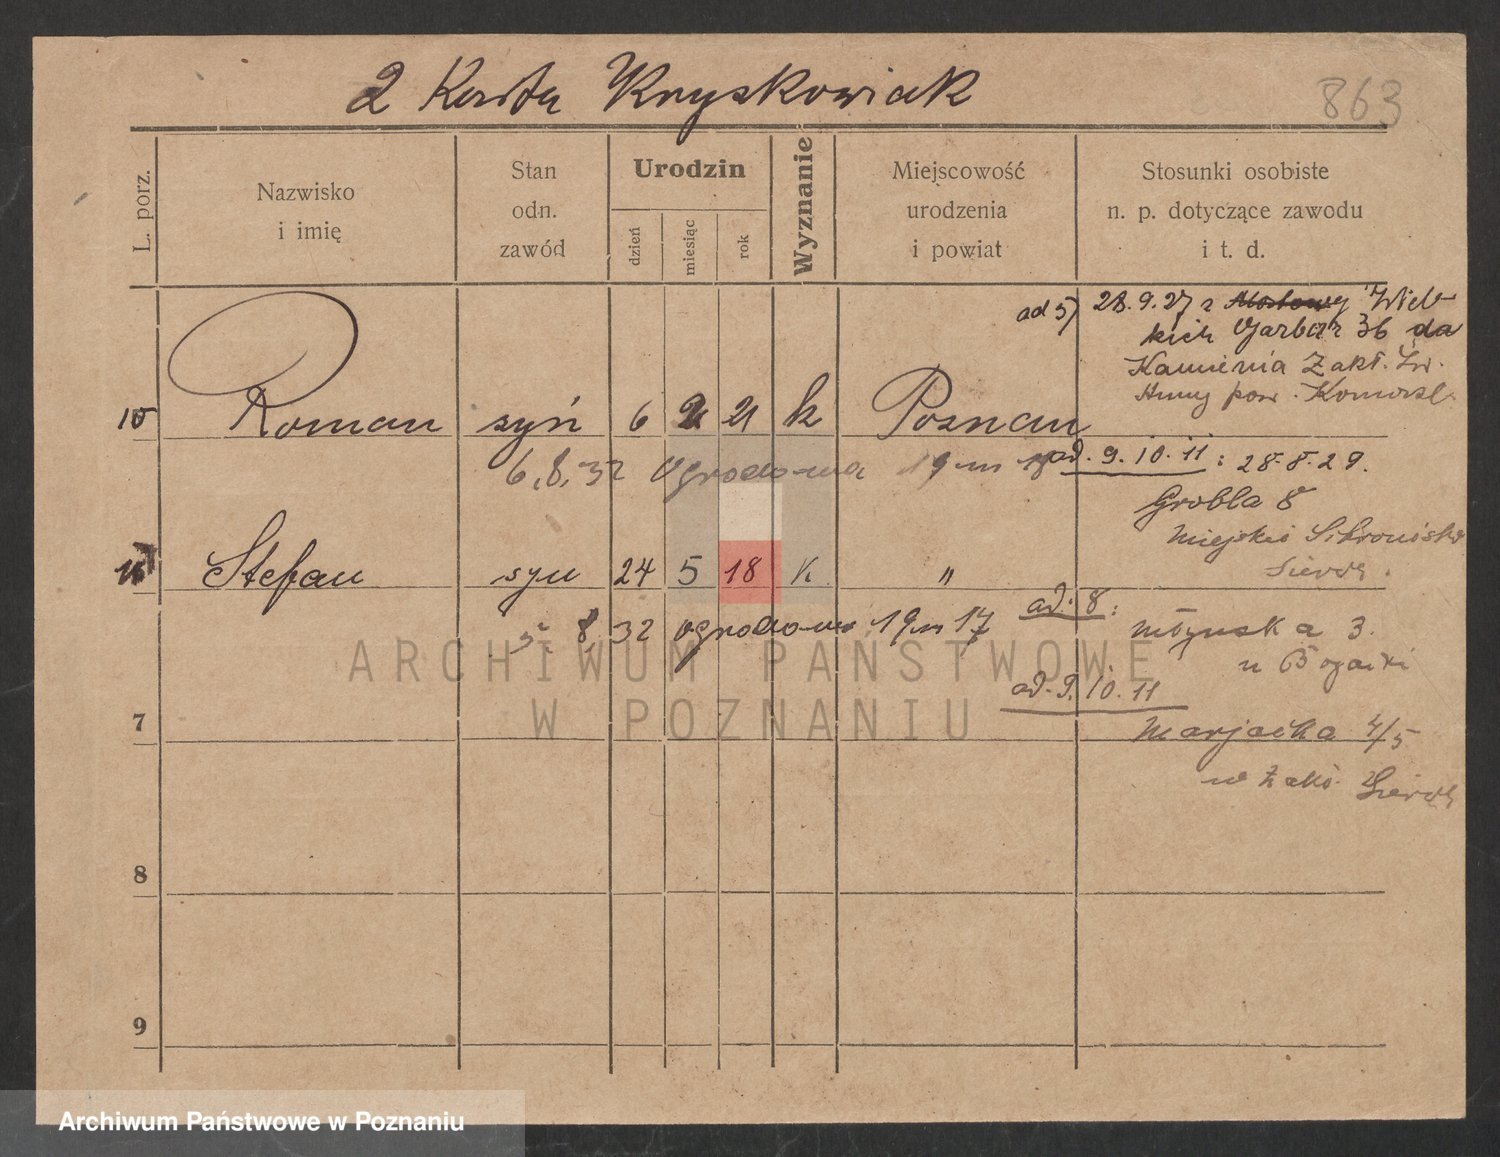 2 Karta Kryskowiak
863
L. porz.
Nazwisko
i imię
Stan
odn.
zawód
Urodzin
dzień
miesiąc
rok
Wyznanie
Miejscowość
urodzenia
i powiat
Stosunki osobiste
n. p. dotyczące zawodu
i t. d.
ad 5) 28.9.27 z Mostowy Wiel-
kich Garbar 36 da
Kamienia Zakł.
pow. Komorsk
10 Roman syn 6 2 21 k Poznan
6.8.32 Ogrodowa 19 m
ad. 9. 10. 11: 28.8.29.
Grobla 8
Miejskie Schronisko
Sierot.
Stefan syn 24 5 18 k "
5. 8. 32 ogrodowa 19 m 17
ad. 8:
Młyńska 3.
ad. 9. 10. 11
7
Marjacka 4/5
w Zakł. Sierot
8
9
ARCHIWUM PAŃSTWOWE
W POZNANIU
Archiwum Państwowe w Poznaniu